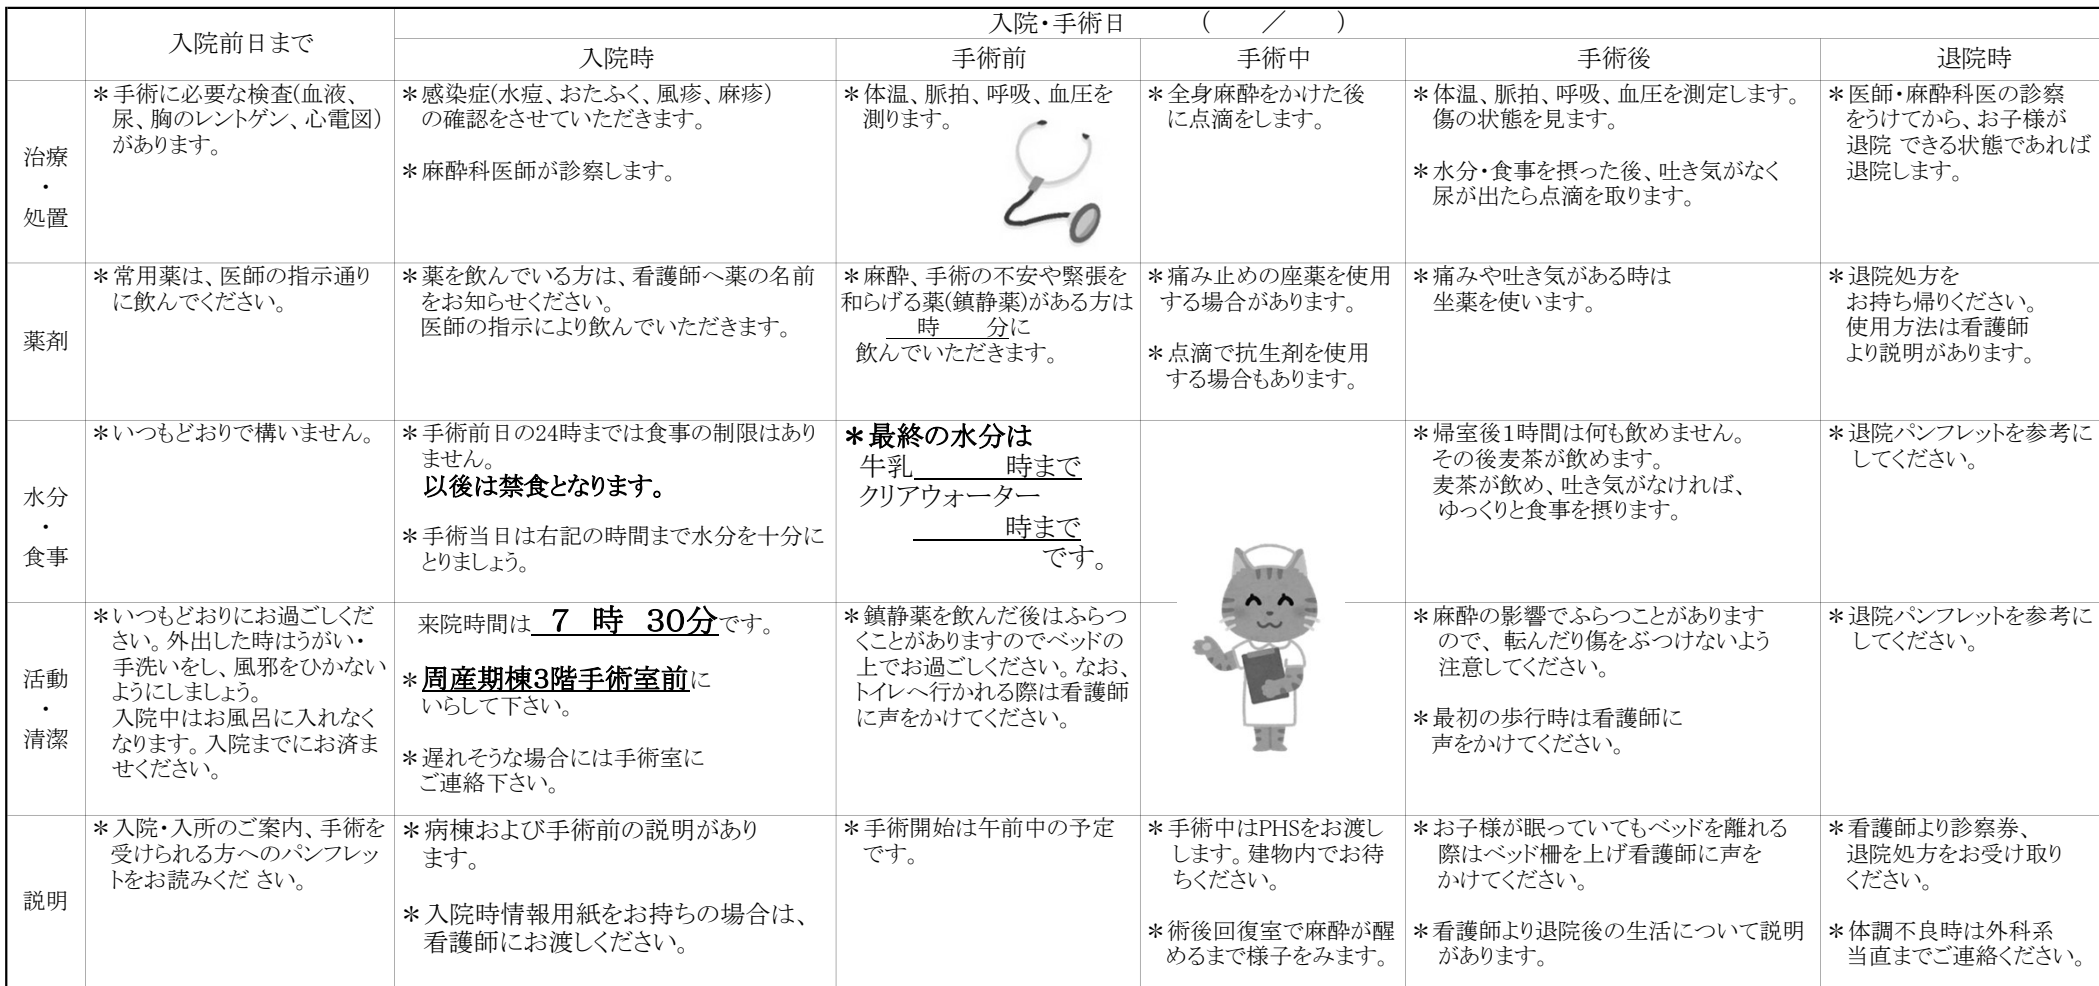 入院前日まで
入院・手術日 ( ／ )
入院時
手術前
手術中
手術後
退院時
治療
・
処置
＊手術に必要な検査(血液、
尿、胸のレントゲン、心電図)
があります。
＊感染症(水痘、おたふく、風疹、麻疹)
の確認をさせていただきます。
＊麻酔科医師が診察します。
＊体温、脈拍、呼吸、血圧を
測ります。
＊全身麻酔をかけた後
に点滴をします。
＊体温、脈拍、呼吸、血圧を測定します。
傷の状態を見ます。
＊水分・食事を摂った後、吐き気がなく
尿が出たら点滴を取ります。
＊医師・麻酔科医の診察
をうけてから、お子様が
退院 できる状態であれば
退院します。
薬剤
＊常用薬は、医師の指示通り
に飲んでください。
＊薬を飲んでいる方は、看護師へ薬の名前
をお知らせください。
医師の指示により飲んでいただきます。
＊麻酔、手術の不安や緊張を
和らげる薬(鎮静薬)がある方は
時 分に
飲んでいただきます。
＊痛み止めの座薬を使用
する場合があります。
＊点滴で抗生剤を使用
する場合もあります。
＊痛みや吐き気がある時は
坐薬を使います。
＊退院処方を
お持ち帰りください。
使用方法は看護師
より説明があります。
水分
・
食事
＊いつもどおりで構いません。
＊手術前日の24時までは食事の制限はあり
ません。
以後は禁食となります。
＊手術当日は右記の時間まで水分を十分に
とりましょう。
＊最終の水分は
牛乳 時まで
クリアウォーター
時まで
です。
＊帰室後1時間は何も飲めません。
その後麦茶が飲めます。
麦茶が飲め、吐き気がなければ、
ゆっくりと食事を摂ります。
＊退院パンフレットを参考に
してください。
活動
・
清潔
＊いつもどおりにお過ごしくだ
さい。外出した時はうがい・
手洗いをし、風邪をひかない
ようにしましょう。
入院中はお風呂に入れなく
なります。入院までにお済ま
せください。
来院時間は 7 時 30分です。
＊周産期棟3階手術室前に
いらして下さい。
＊遅れそうな場合には手術室に
ご連絡下さい。
＊鎮静薬を飲んだ後はふらつ
くことがありますのでベッドの
上でお過ごしください。なお、
トイレへ行かれる際は看護師
に声をかけてください。
＊麻酔の影響でふらつことがあります
ので、転んだり傷をぶつけないよう
注意してください。
＊最初の歩行時は看護師に
声をかけてください。
＊退院パンフレットを参考に
してください。
説明
＊入院・入所のご案内、手術を
受けられる方へのパンフレッ
トをお読みくだ さい。
＊病棟および手術前の説明があり
ます。
＊入院時情報用紙をお持ちの場合は、
看護師にお渡しください。
＊手術開始は午前中の予定
です。
＊手術中はPHSをお渡し
します。建物内でお待
ちください。
＊術後回復室で麻酔が醒
めるまで様子をみます。
＊お子様が眠っていてもベッドを離れる
際はベッド柵を上げ看護師に声を
かけてください。
＊看護師より退院後の生活について説明
があります。
＊看護師より診察券、
退院処方をお受け取り
ください。
＊体調不良時は外科系
当直までご連絡ください。